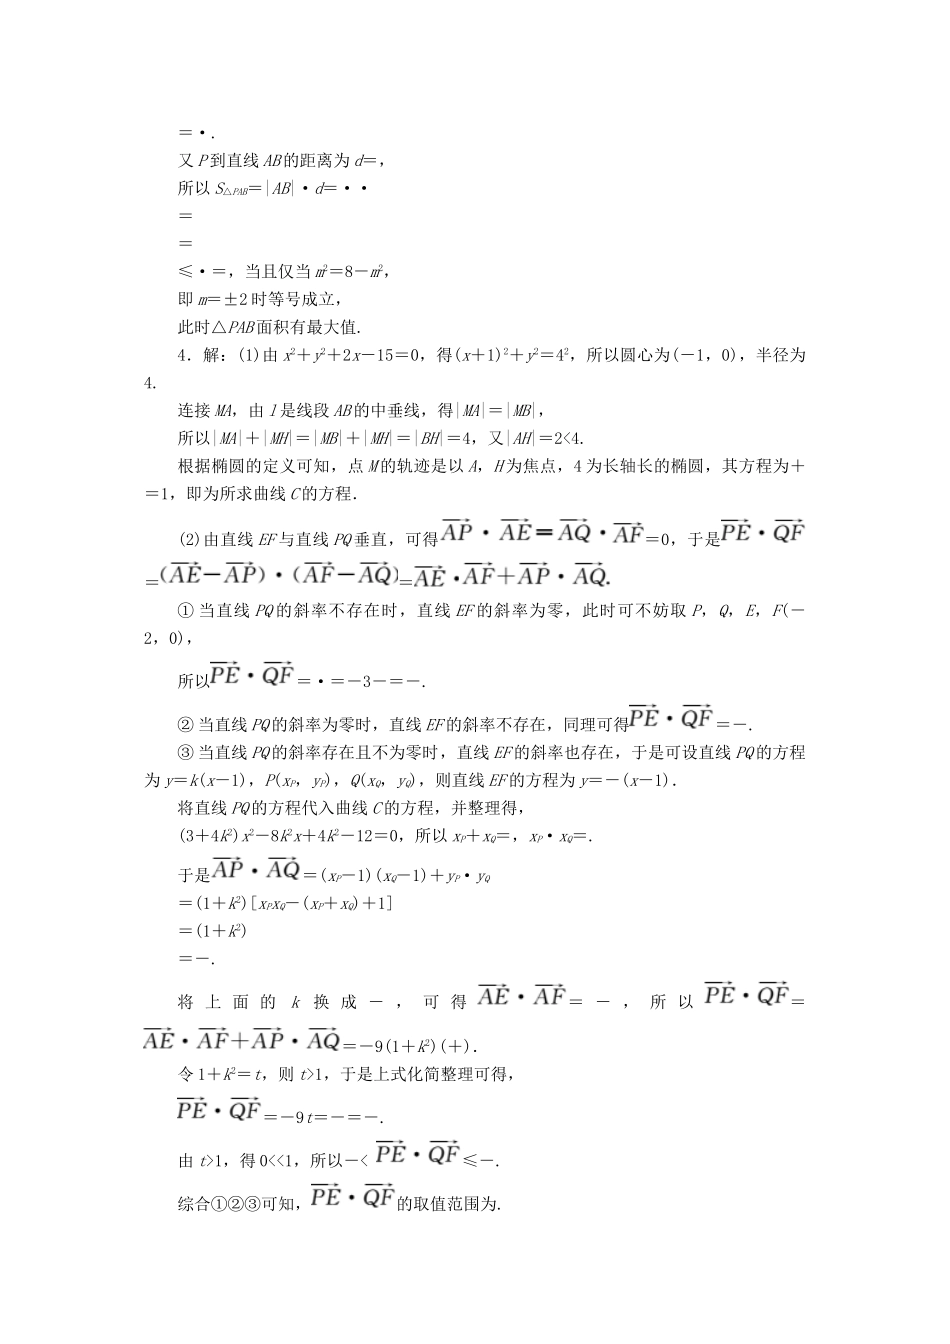 =·.
又 P 到直线 AB 的距离为 d=,
所以 S△PAB=|AB|·d=··
=
=
≤·=,当且仅当 m²=8-m²,
即 m=±2 时等号成立,
此时△PAB 面积有最大值.
4.解:(1)由 x²+y²+2x-15=0,得(x+1)²+y²=4²,所以圆心为(-1,0),半径为
4.
连接 MA,由 l 是线段 AB 的中垂线,得|MA|=|MB|,
所以|MA|+|MH|=|MB|+|MH|=|BH|=4,又|AH|=2<4.
根据椭圆的定义可知,点 M 的轨迹是以 A,H 为焦点,4 为长轴长的椭圆,其方程为+
=1,即为所求曲线 C 的方程.
(2)由直线 EF 与直线 PQ 垂直,可得AP→·AE→=AQ→·AF→=0,于是PE→·QF→
=(AE→-AP→)·(AF→-AQ→)=AE→·AF→+AP→·AQ→.
①当直线 PQ 的斜率不存在时,直线 EF 的斜率为零,此时可不妨取 P,Q,E,F(-
2,0),
所以PE→·QF→=·=-3-=-.
②当直线 PQ 的斜率为零时,直线 EF 的斜率不存在,同理可得PE→·QF→=-.
③当直线 PQ 的斜率存在且不为零时,直线 EF 的斜率也存在,于是可设直线 PQ 的方程
为 y=k(x-1),P(xP,yP),Q(xQ,yQ),则直线 EF 的方程为 y=-(x-1).
将直线 PQ 的方程代入曲线 C 的方程,并整理得,
(3+4k²)x²-8k²x+4k²-12=0,所以 xP+xQ=,xP·xQ=.
于是AP→·AQ→=(xP-1)(xQ-1)+yP·yQ
=(1+k²)[xPxQ-(xP+xQ)+1]
=(1+k²)
=-.
将上面的 k 换成-,可得AE→·AF→=-,所以PE→·QF→=
AE→·AF→+AP→·AQ→=-9(1+k²)(+).
令 1+k²=t,则 t>1,于是上式化简整理可得,
PE→·QF→=-9t=-=-.
由 t>1,得 0<<1,所以-<PE→·QF→≤-.
综合①②③可知,PE→·QF→的取值范围为.